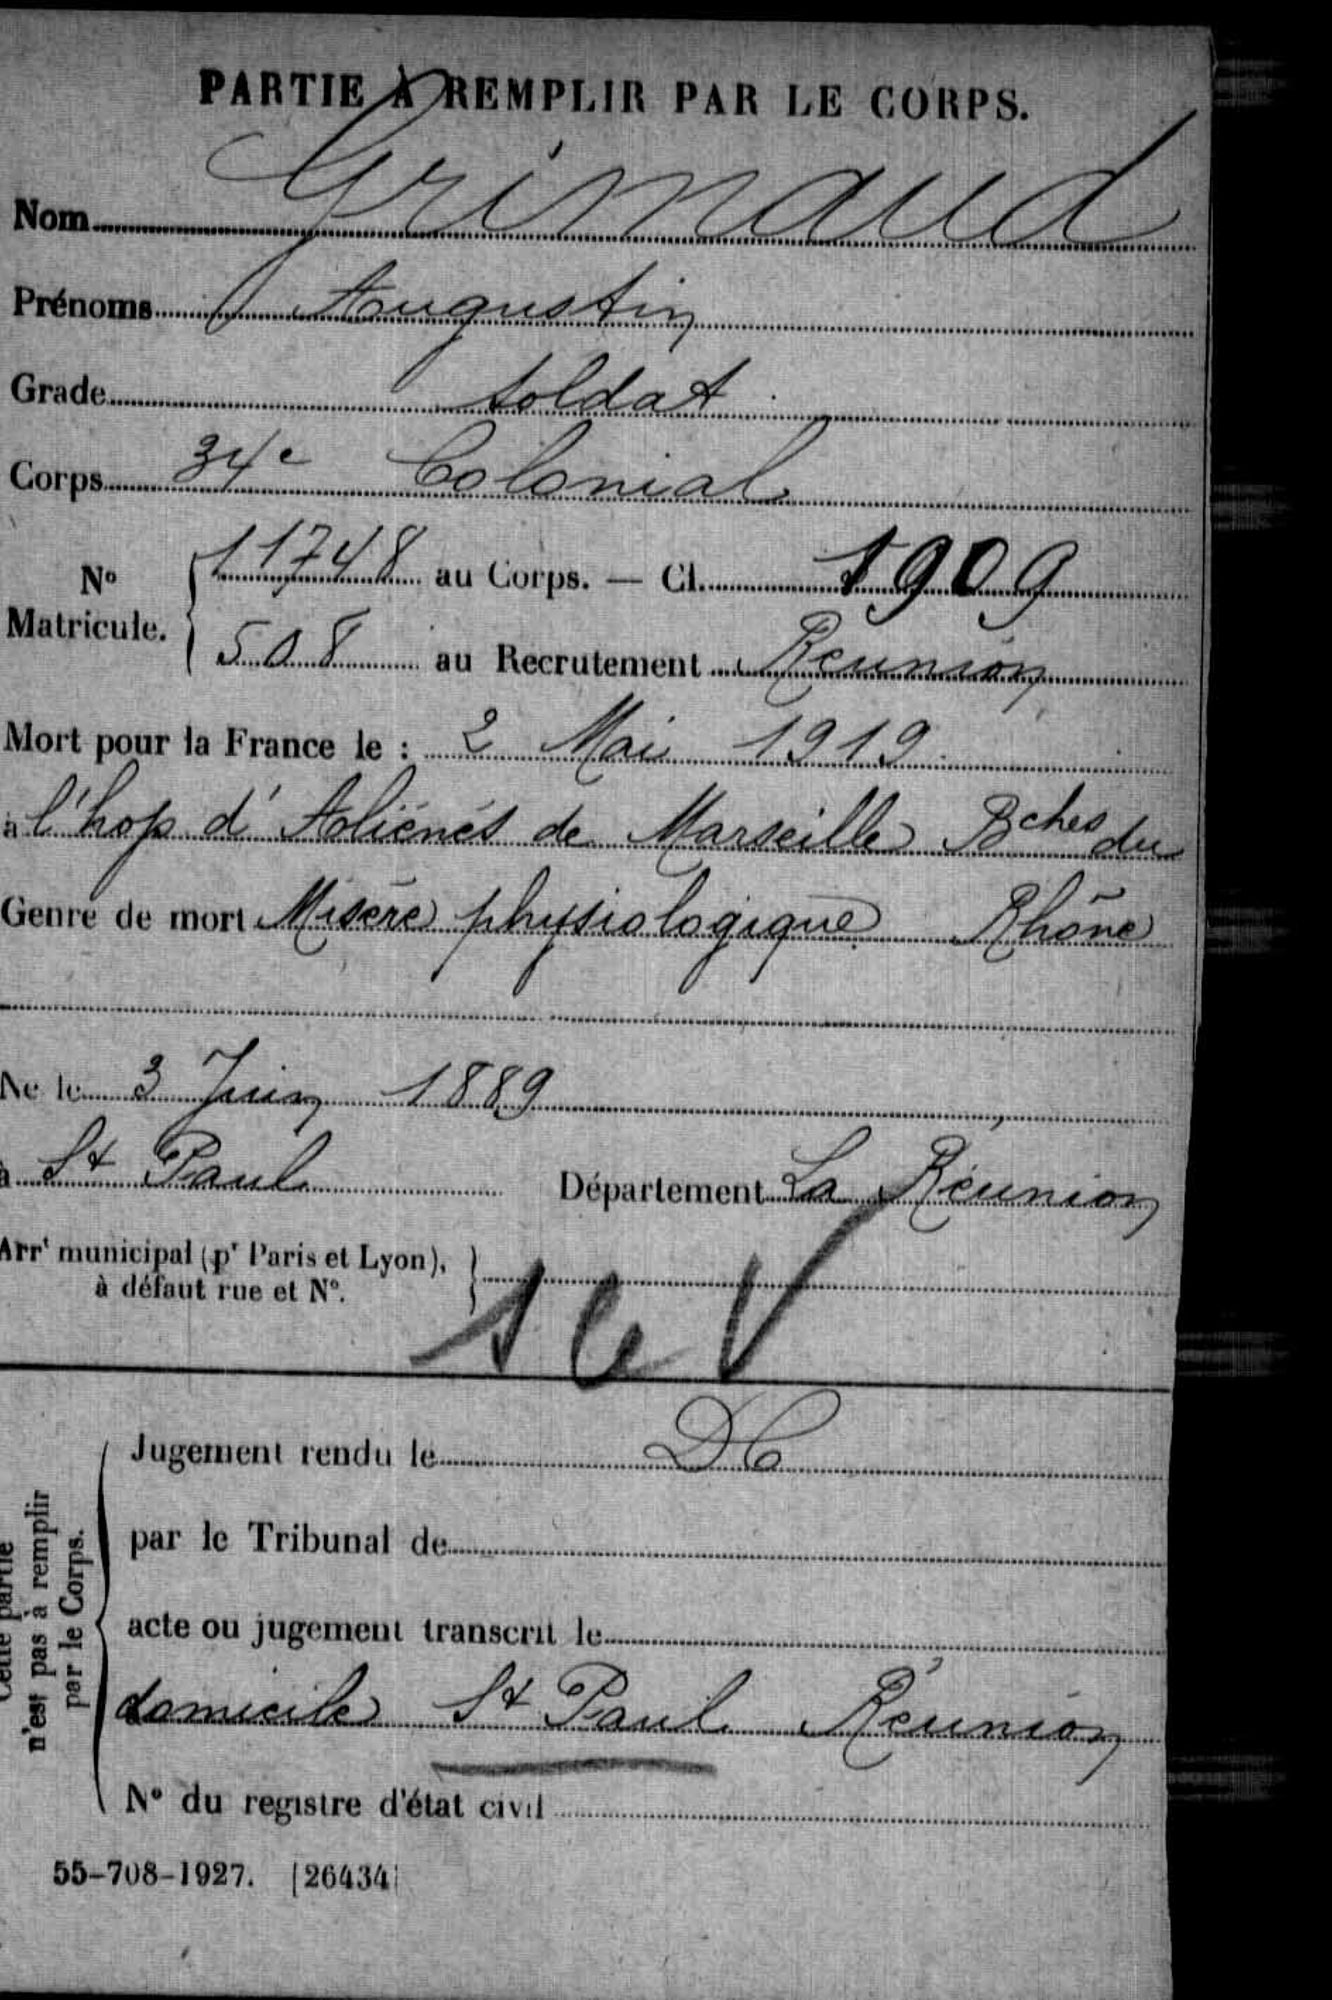 PARTIE À REMPLIR PAR LE CORPS.
Nom Grimaud
Prénoms Augustin
Grade soldat
Corps 34e Colonial
No Matricule. { 11748 au Corps. — Cl. 1909
508 au Recrutement Réunion
Mort pour la France le : 2 Mai 1919
à l'hop d'Aliénés de Marseille Bches du
Genre de mort Misère physiologique Rhône
Né le 3 Juin 1889
à St Paul Département La Réunion
Arrt municipal (pr Paris et Lyon),
à défaut rue et No. }
Cette partie
n'est pas à remplir
par le Corps.
Jugement rendu le DC
par le Tribunal de
acte ou jugement transcrit le
domicile St Paul Réunion
No du registre d'état civil
55-708-1927. [26434]